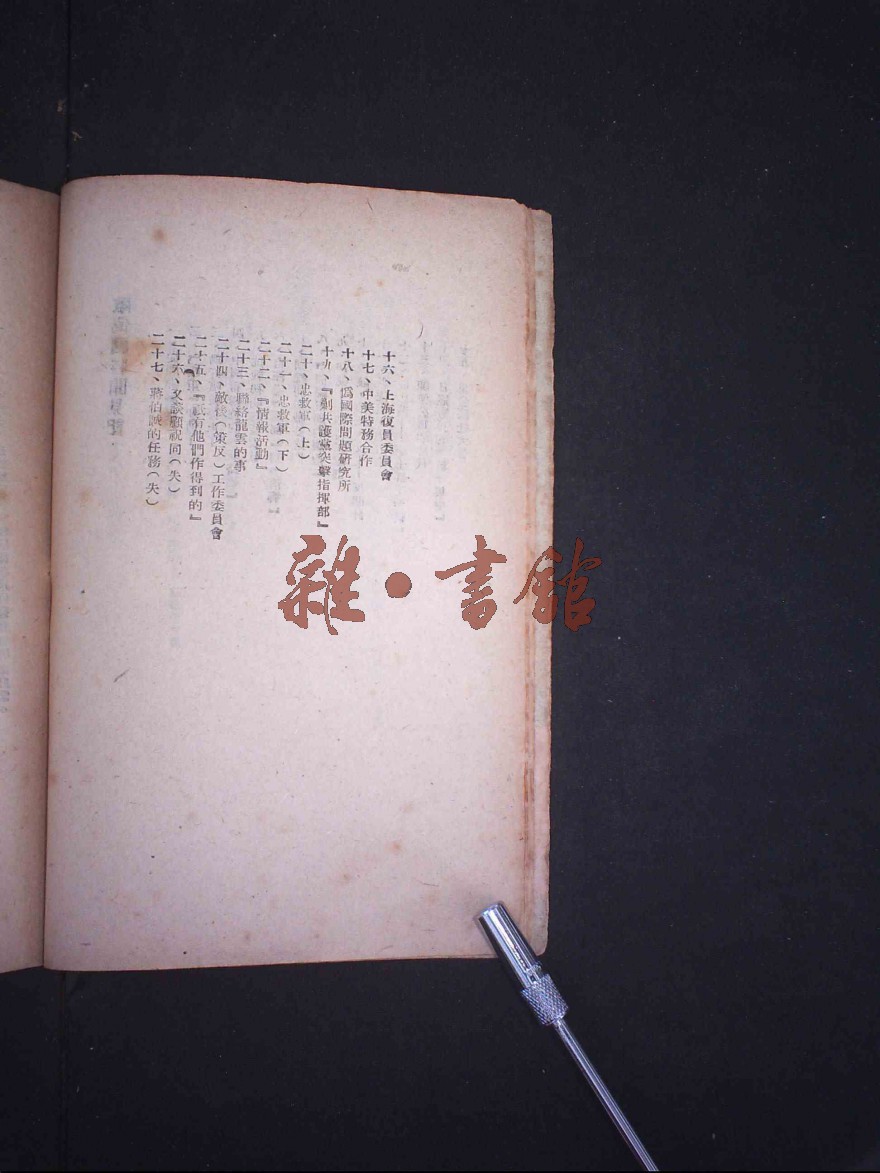 十六、上海復員委員會
十七、中美特務合作
十八、僞國際問題研究所
十九、『剿共護黨突擊指揮部』
二十、忠救軍(上)
二十一、忠救軍(下)
二十二、『情報活動』
二十三、聯絡龍雲的事
二十四、敵後(策反)工作委員會
二十五、『祇有他們作得到的』
二十六、又談顧祝同(失)
二十七、蔣伯誠的任務(失)
雜•書館